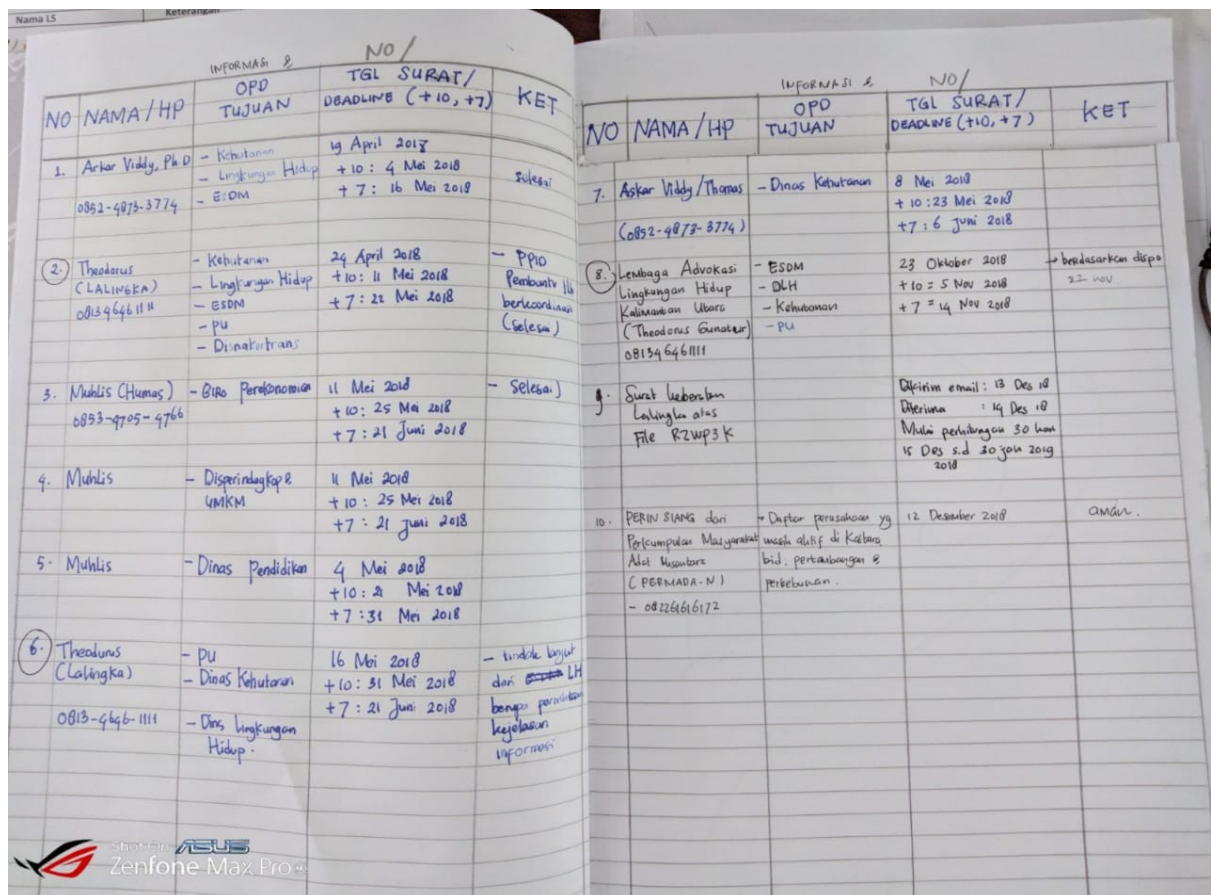 Nama LS
Keterangan
INFORMASI &
NO/
NO
NAMA / HP
OPD
TUJUAN
TGL SURAT/
DEADLINE (+10, +7)
KET
1.
Arkar Viddy, Ph.D
0852-4873-3774
- Kehutanan
- Lingkungan Hidup
- ESDM
19 April 2018
+ 10 : 4 Mei 2018
+ 7 : 16 Mei 2018
selesai
2.
Theodorus
(LALINGKA)
081346461111
- Kehutanan
- Lingkungan Hidup
- ESDM
- PU
- Disnakertrans
24 April 2018
+10 : 11 Mei 2018
+ 7 : 22 Mei 2018
- PPID
Pembantu
berkoordinasi
(Selesai)
3.
Muhlis (Humas)
0853-9705-4766
- BIRO Perekonomian
11 Mei 2018
+ 10 : 25 Mei 2018
+ 7 : 21 Juni 2018
- Selesai)
4.
Muhlis
- Disperindagkop &
UMKM
11 Mei 2018
+ 10 : 25 Mei 2018
+7 : 21 Juni 2018
5.
Muhlis
- Dinas Pendidikan
4 Mei 2018
+10 : 21 Mei 2018
+ 7 : 31 Mei 2018
6.
Theodurus
(Lalingka)
0813-4646-1111
- PU
- Dinas Kehutanan
- Dinas Lingkungan
Hidup.
16 Mei 2018
+10 : 31 Mei 2018
+7 : 21 Juni 2018
- tindak lanjut
dari LH
berupa
kejelasan
informasi
INFORMASI &
NO/
NO
NAMA / HP
OPD
TUJUAN
TGL SURAT/
DEADLINE (+10, +7)
KET
7.
Askar Viddy / Thomas
(0852-4873-3774)
- Dinas Kehutanan
8 Mei 2018
+ 10 : 23 Mei 2018
+7 : 6 Juni 2018
8.
Lembaga Advokasi
Lingkungan Hidup
Kalimantan Utara
(Theodorus
081346461111
- ESDM
- DLH
- Kehutanan
- PU
23 Oktober 2018
+ 10 = 5 Nov 2018
+ 7 = 14 Nov 2018
→ berdasarkan dispo
22 nov
9.
Surat keberatan
Lalingka atas
File RZWP3K
Dikirim email : 13 Des 18
Diterima : 14 Des 18
Mulai perhitungan 30 hari
15 Des s.d 30 jan 2019
2018
10.
PERIN SIANG dari
Perkumpulan Masyarakat
Adat Nusantara
(PERMADA-N)
- 082261616172
- Daptar perusahaan yg
masih aktif di Kaltara
bid. pertambangan &
perkebunan.
12 Desember 2018
aman.
Shot on ASUS
Zenfone Max Pro